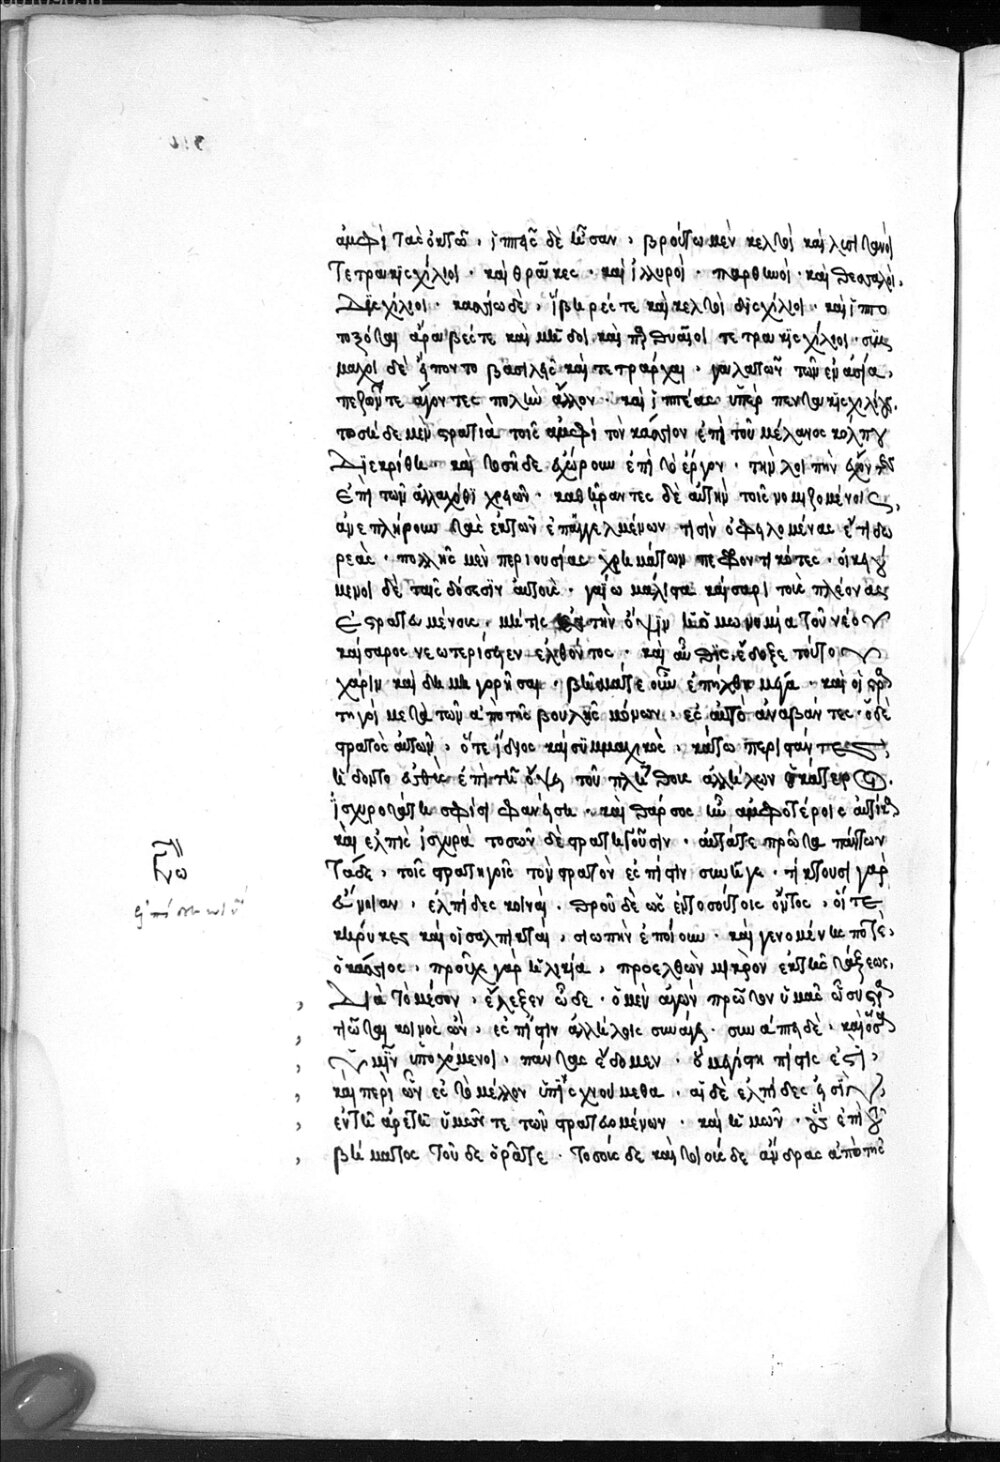 ἀμφὶ τὰς ὀκτώ, ἱππεῖς δὲ ἦσαν, βρούτω μὲν κελτοὶ καὶ λυσιτανοὶ
τετρακισχίλιοι · καὶ θρᾶκες · καὶ ἰλλυριοὶ · παρθινοὶ · καὶ θεσσαλοὶ,
δισχίλιοι · κασσίω δὲ, ἴβηρές τε καὶ κελτοὶ δισχίλιοι · καὶ ἱππο
τοξόται ἄραβές τε καὶ μῆδοι καὶ παρθυαῖοι τετρακισχίλιοι · σύμ
μαχοι δὲ εἵποντο βασιλεῖς καὶ τετράρχαι, γαλατῶν τῶν ἐν ἀσία,
πεζῶν τε ἄγοντες πολὺ ἄλλον · καὶ ἱππέας ὑπὲρ πεντακισχιλίους,
τοσήδε μὲν στρατιὰ τοῖς ἀμφὶ τὸν κάσσιον ἐπὶ τοῦ μέλανος κόλπου
διεκρίθη · καὶ τοσῆδε ἐχώρουν ἐπὶ τὸ ἔργον · τὴν λοιπὴν ἔχοντες
ἐπὶ τῶν ἀλλαχόθι χρειῶν · καθήραντες δὲ αὐτὴν τοῖς νομιζομένοις,
ἀνεπλήρουν τὰς ἐκ τῶν ἐπηγγελμένων τισὶν ὀφειλομένας ἔτι δω
ρεὰς · πολλῆς μὲν περιουσίας χρημάτων πεφροντικότες · οἰκειού
μενοι δὲ ταῖς δόσεσιν αὐτοὺς · γαΐω μάλιστα καίσαρι τοὺς πλέονας
ἐστρατευμένους, μή τις ἐς τὴν ὄψιν ἢ ὁμωνυμίαν τοῦ νέου
καίσαρος νεωτερίσειεν ἐλθόντος · καὶ αὖθις ἔδοξε τούτου
χάριν καὶ δημηγορῆσαι · βῆμά τε οὖν ἐπήχθη μέγα · καὶ οἱ στρα
τηγοὶ μετὰ τῶν ἀπὸ τῆς βουλῆς μόνων, ἐς αὐτὸ ἀναβάντες · ὁ δὲ
στρατὸς αὐτῶν, ὅ τε ἴδιος καὶ συμμαχικὸς, κάτω περιστάντες
ἥδοντο εὐθὺς ἐπὶ τῇ ὄψει τοῦ πλήθους ἀλλήλων ἑκάτεροι.
ἰσχυροτάτη σφίσι φανείση · καὶ θάρσος ἦν ἀμφοτέροις αὐτίκα
καὶ ἐλπὶς ἰσχυρὰ τοσῶνδε στρατηγοῦσιν · αὐτά τε πρῶτα πάντων
τάδε, τοῖς στρατηγοῖς τὸν στρατὸν ἐς πίστιν συνῆγε · τίκτουσι γὰρ
εὔνοιαν, ἐλπίδες κοιναὶ · θροῦ δὲ ὡς ἐν τοσούτοις ὄντος, οἵ τε
κήρυκες καὶ οἱ σαλπικταὶ, σιωπὴν ἐποίουν · καὶ γενομένης ποτὲ,
ὁ κάσσιος, προῦχε γὰρ ἡλικία, προελθὼν μικρὸν ἐκ τῆς τάξεως,
διὰ τὸ μέσον, ἔλεξεν ὧδε · ὁ μὲν ἀγὼν πρῶτον ἡμᾶς ὦ συστρα
τιῶται κοινὸς ὢν, ἐς πίστιν ἀλλήλοις συνάγει · συνάπτει δὲ, καὶ ὅσα
ὑμῖν ὑποσχόμενοι, πάντας ἔδομεν · οὗ μεγίστη πίστις ἐστὶ,
καὶ περὶ ὧν ἐς τὸ μέλλον ὑπισχνούμεθα · αἱ δὲ ἐλπίδες εἰσὶν,
ἐν τῇ ἀρετῇ ὑμῶν τε τῶν στρατευομένων · καὶ ἡμῶν · οὓς ἐπὶ τοῦ
βήματος τοῦδε ὁρᾶτε · τοσούσδε καὶ τοιούσδε ἄνδρας ἀπὸ τῆς